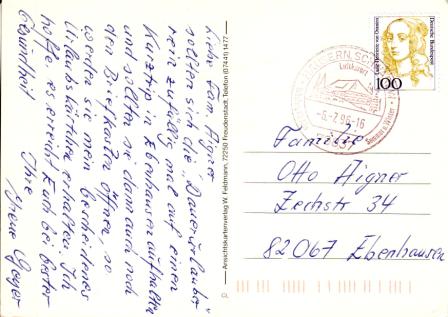 Liebe Fam. Aigner
sollten sich die "Dauerurlauber"
rein zufällig mal auf einen
Kurztrip in Ebenhausen aufhalten
und sollten sie dann auch noch
den Briefkasten öffnen, so
werden sie mein bescheidenes
Urlaubskärtchen erhalten. Ich
hoffe, es erreicht Euch bei bester
Gesundheit!
Ihre
Irene Geyer
Ansichtskartenverlag W. Feldmann, 72250 Freudenstadt, Telefon (07441) 1477
Luftkurort
-6.-7.96-16
Deutsche Bundespost
100
Familie
Otto Aigner
Zechstr 34
82067 Ebenhausen